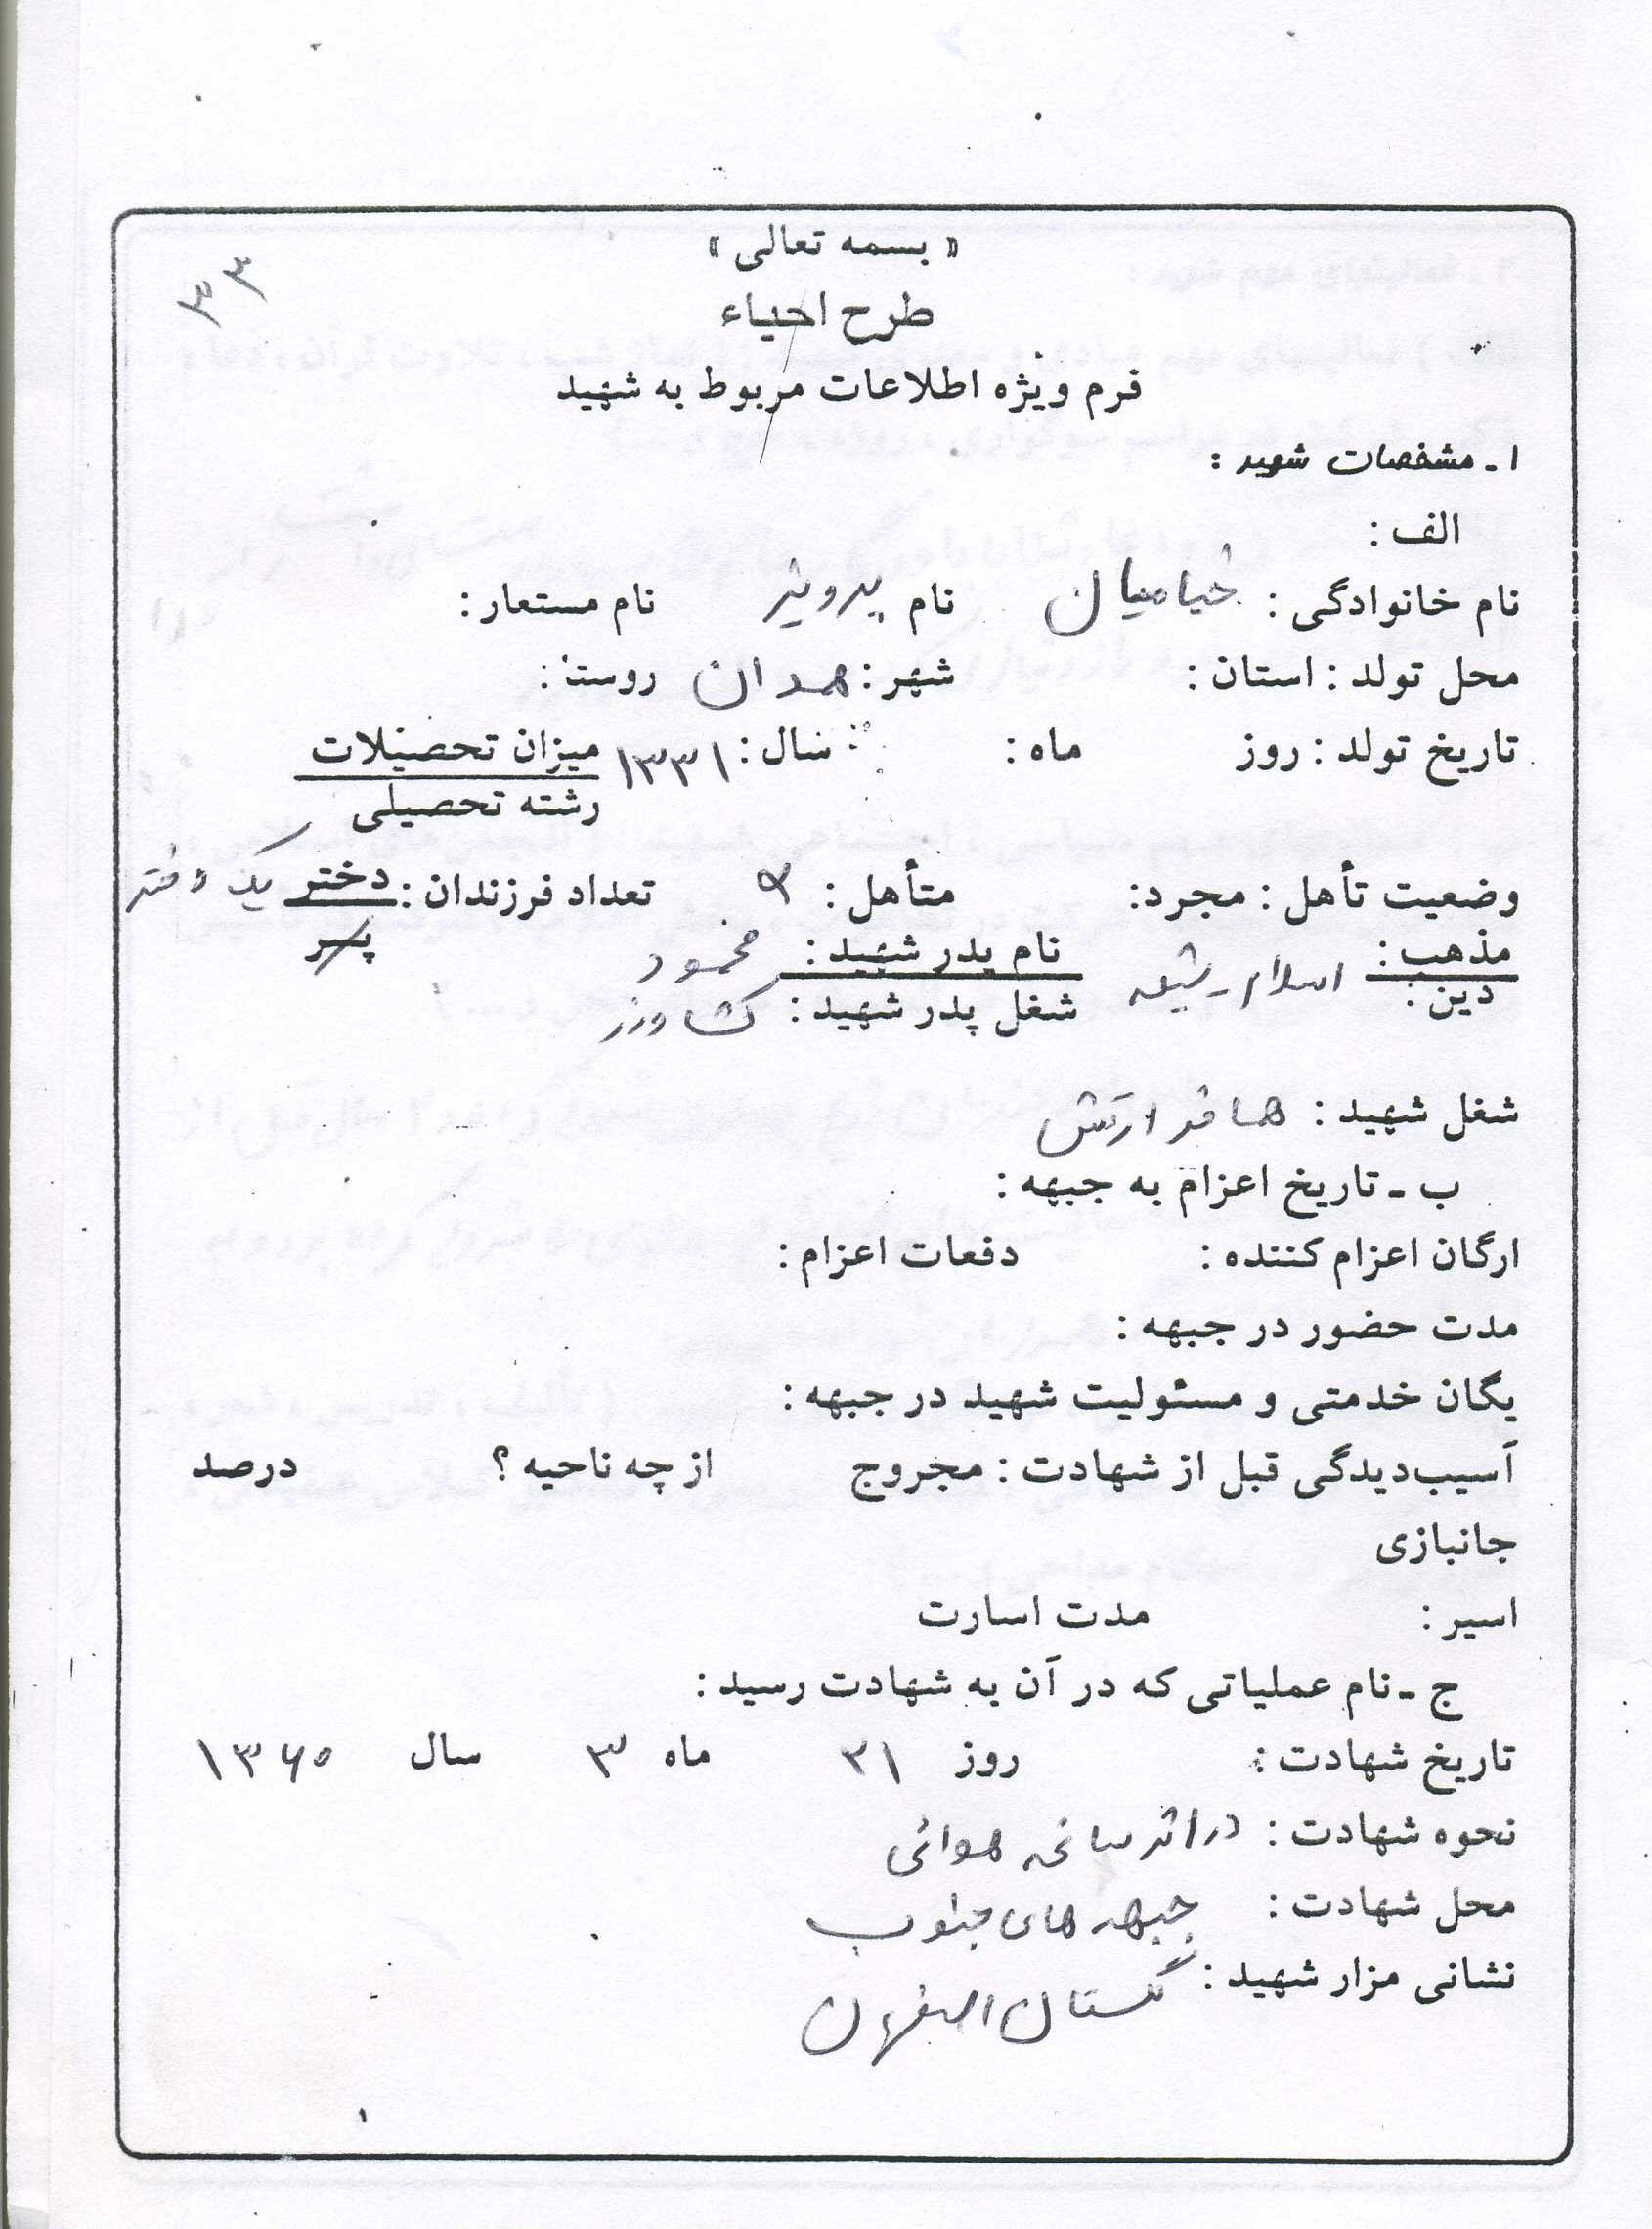 « بسمه تعالی »
۳۳
طرح احیاء
فرم ویژه اطلاعات مربوط به شهید
۱ ـ مشخصات شهید :
الف :
نام خانوادگی : خیامیان نام پرویز نام مستعار :
محل تولد : استان : شهر : همدان روستا :
تاریخ تولد : روز ماه : سال : ۱۳۳۱ میزان تحصیلات
رشته تحصیلی
وضعیت تأهل : مجرد: متأهل : تعداد فرزندان : دختر یک دختر
پسر
مذهب : اسلام ـ شیعه نام پدر شهید : محمود
دین : شغل پدر شهید : کشاورز
شغل شهید : همافر ارتش
ب ـ تاریخ اعزام به جبهه :
ارگان اعزام کننده : دفعات اعزام :
مدت حضور در جبهه :
یگان خدمتی و مسئولیت شهید در جبهه :
آسیب‌دیدگی قبل از شهادت : مجروح از چه ناحیه ؟ درصد
جانبازی
اسیر : مدت اسارت
ج ـ نام عملیاتی که در آن به شهادت رسید :
تاریخ شهادت : روز ۳۱ ماه ۳ سال ۱۳۶۵
نحوه شهادت : در اثر سانحه هوائی
محل شهادت : جبهه های جنوب
نشانی مزار شهید : گلستان اصفهان
۱